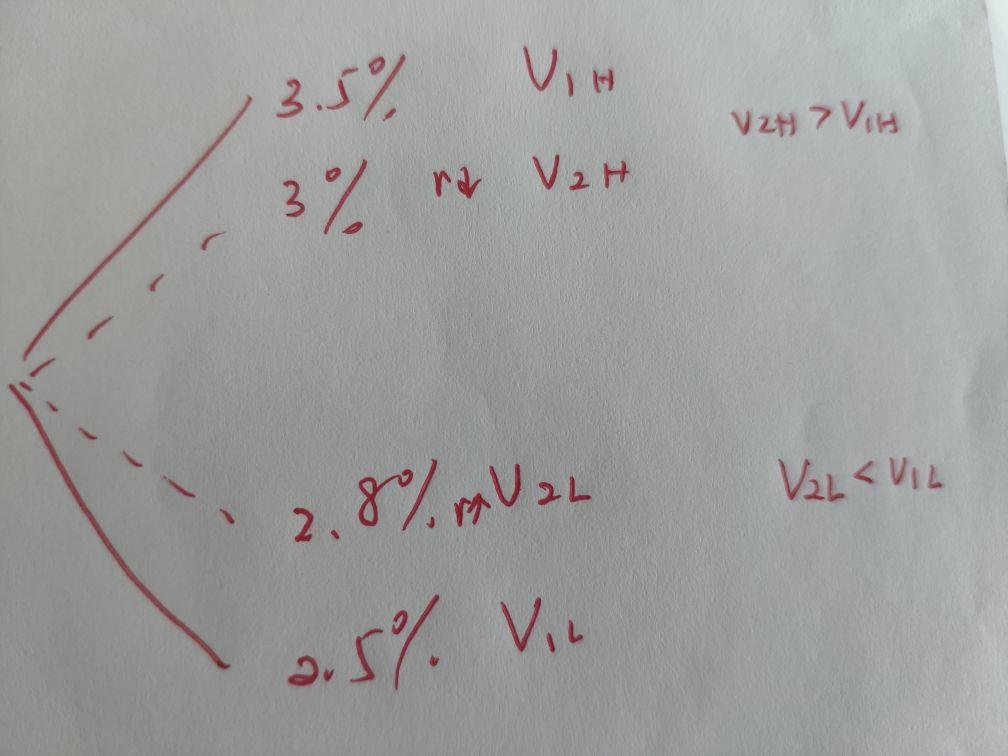 3.5% V1H
V2H > V1H
3% r↓ V2H
2.8% r↑ V2L
V2L < V1L
2.5% V1L